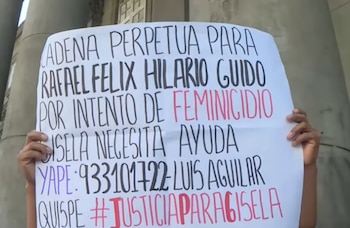 CADENA PERPETUA PARA
RAFAEL FELIX HILARIO GUIDO
POR INTENTO DE FEMINICIDIO
GISELA NECESITA AYUDA
YAPE: 933101722 LUIS AGUILAR
QUISPE #JUSTICIAPARAGISELA